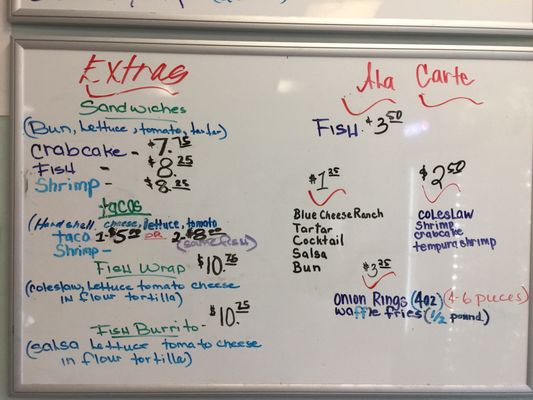 Extras
Sandwiches
(Bun, Lettuce, tomato, tartar)
crabcake - $7.75
FISH - $8.25
Shrimp - $8.25
tacos
(Hard shell, cheese, lettuce, tomato
taco 1-$5.00 OR 2-$8.00
Shrimp - (same fish)
FISH Wrap $10.75
(coleslaw, Lettuce tomato cheese
in flour tortilla)
FISH Burrito - $10.75
(salsa Lettuce tomato cheese
in flour tortilla)
Ala Carte
FISH. $3.50
$1.25
Blue Cheese Ranch
Tartar
Cocktail
Salsa
Bun
$2.50
coleslaw
Shrimp
crabcake
tempura shrimp
$3.25
Onion Rings (4oz) (4-6 pieces)
waffle fries (1/2 pound.)